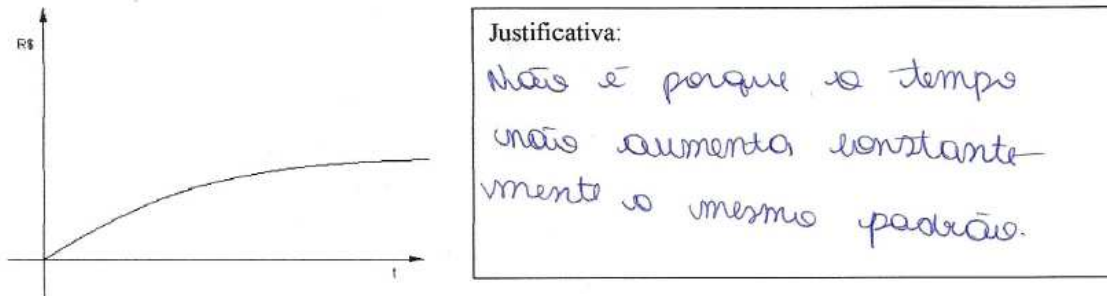 R$
t
Justificativa:
Não é porque o tempo
não aumenta constante-
mente o mesmo padrão.